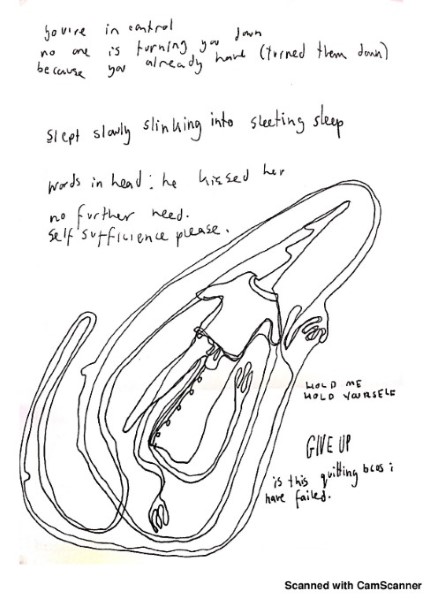 you're in control
no one is turning you down
because you already have (turned them down)
slept slowly slinking into sleeting sleep
words in head: he kissed her
no further need.
self sufficience please.
HOLD ME
HOLD YOURSELF
GIVE UP
is this quitting bcos i
have failed.
Scanned with CamScanner